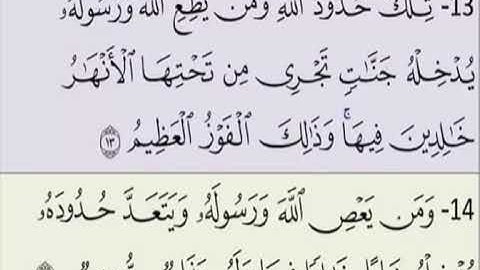 13- تِلْكَ حُدُودُ ٱللَّهِ وَمَن يُطِعِ ٱللَّهَ وَرَسُولَهُۥ
يُدْخِلْهُ جَنَّٰتٍ تَجْرِى مِن تَحْتِهَا ٱلْأَنْهَٰرُ
خَٰلِدِينَ فِيهَا ۚ وَذَٰلِكَ ٱلْفَوْزُ ٱلْعَظِيمُ ۝١٣
14- وَمَن يَعْصِ ٱللَّهَ وَرَسُولَهُۥ وَيَتَعَدَّ حُدُودَهُۥ